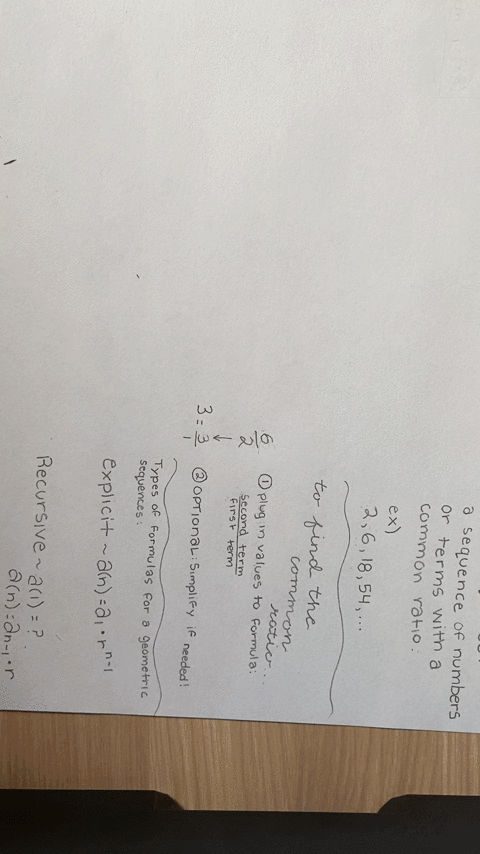 a sequence of numbers
or terms with a
common ratio.
ex)
2, 6, 18, 54, ...
to find the
common
ratio...
① plug in values to formula:
second term
first term
6
2
↓
② OPTIONAL: Simplify if needed!
3 = 3
1
Types of formulas for a geometric
sequences:
explicit ~ a(n) = a₁ · rⁿ⁻¹
Recursive ~ a(1) = ?
a(n) = aₙ₋₁ · r